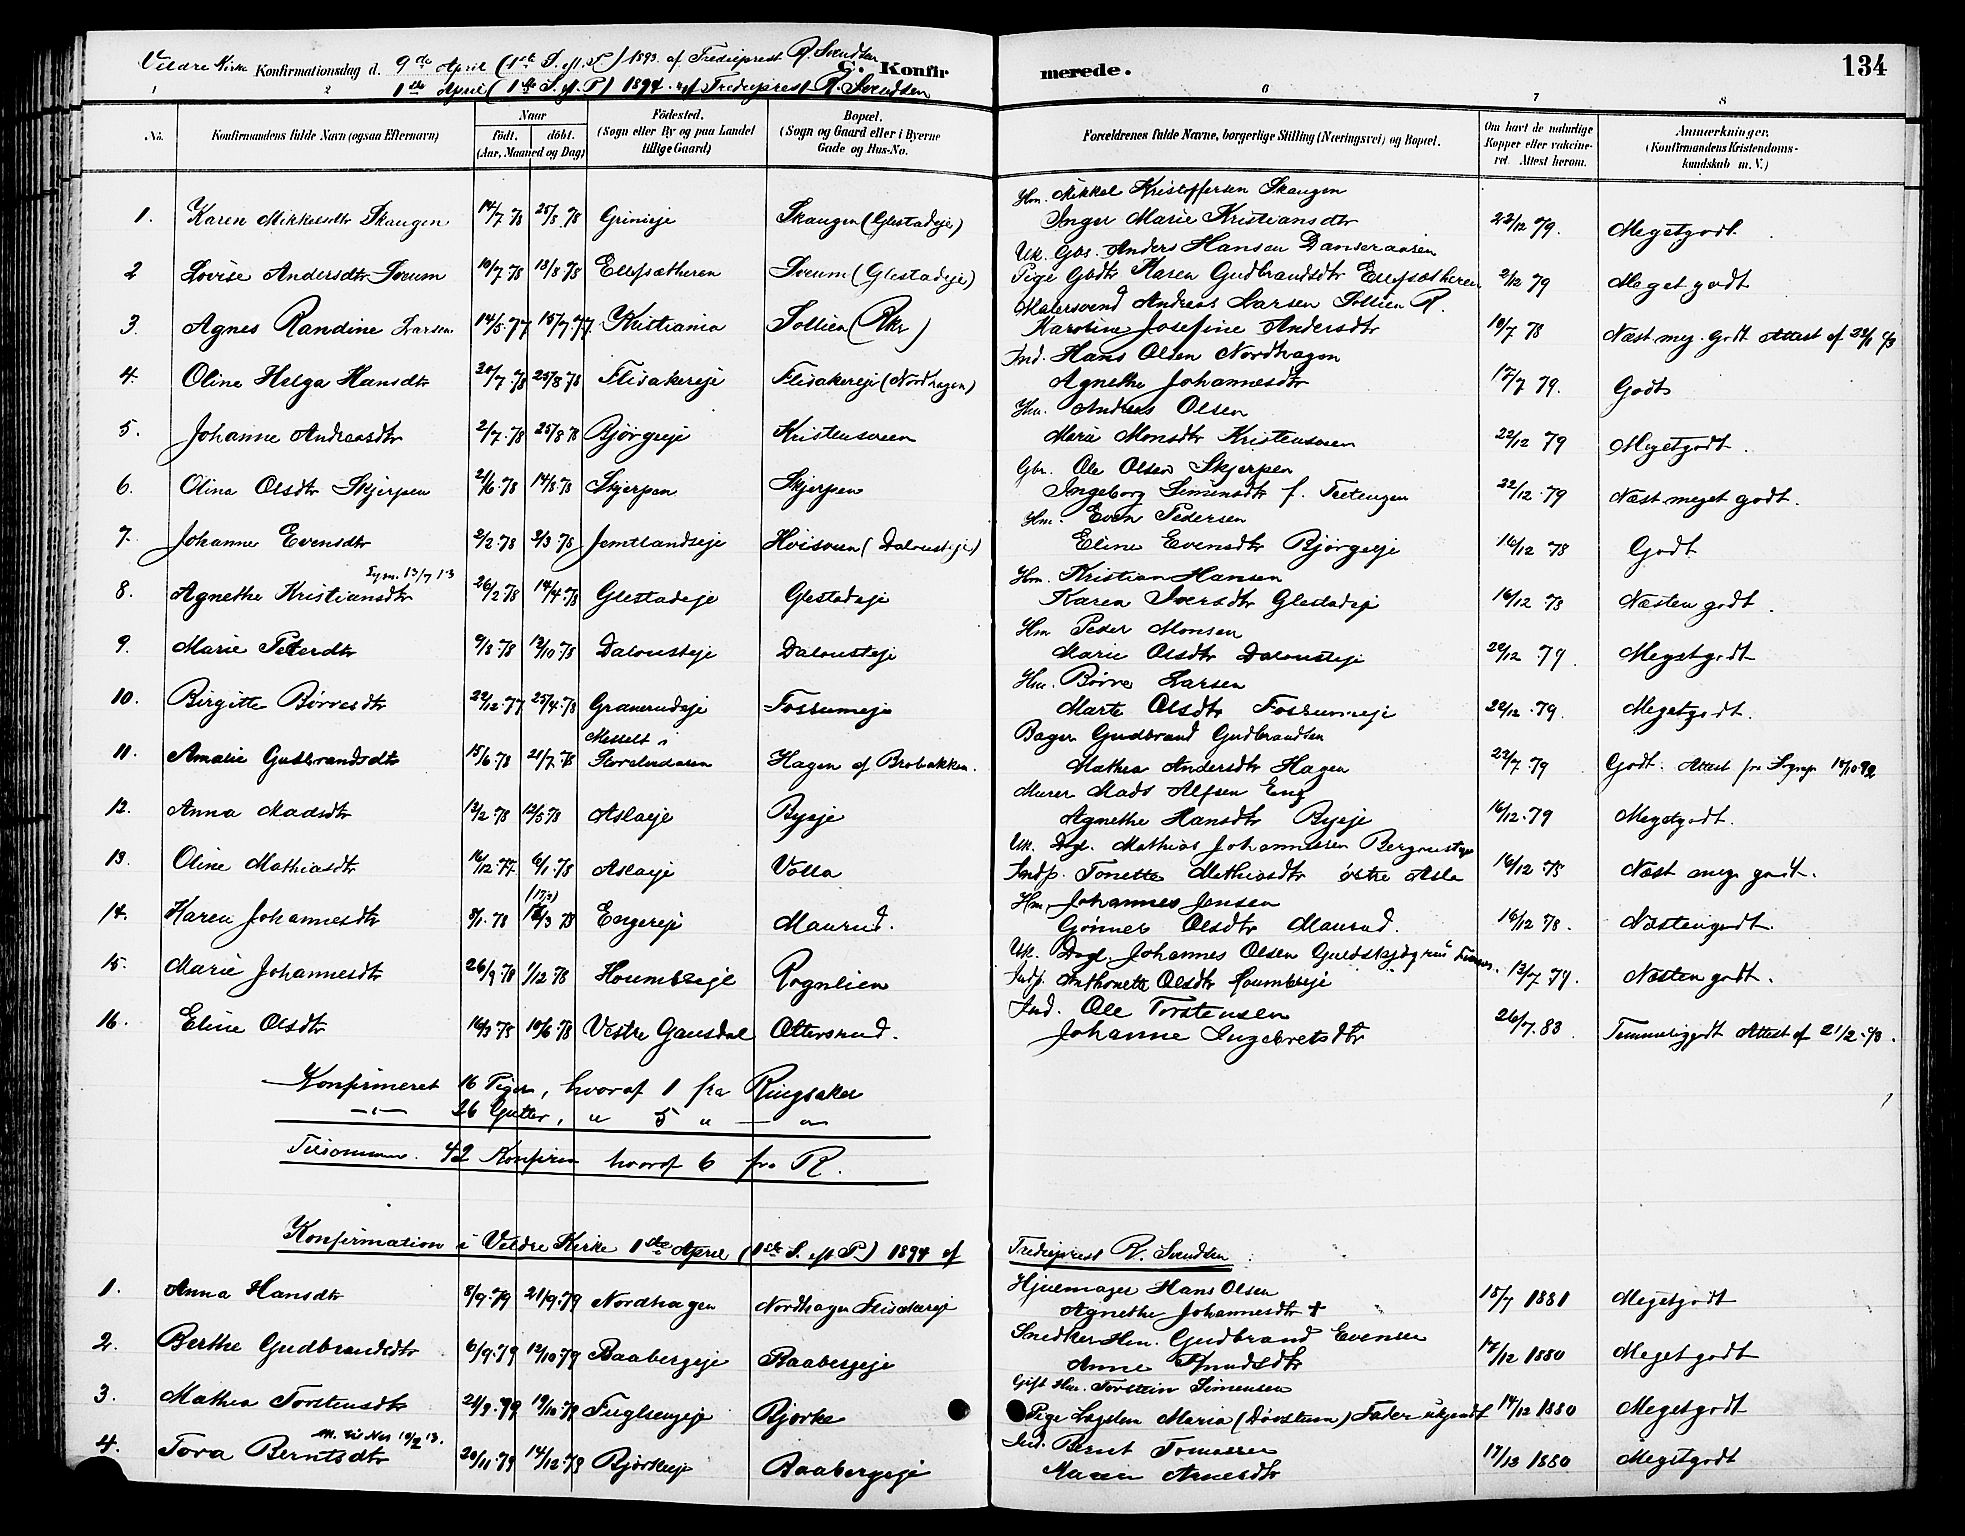 134
Veldre Kirke Konfirmationsdag d. 9de April (1ste S. e/l. P) 1893 af Tredieprest R. Svendsen
C. Konfirmerede.
1ste April (1ste S. e/l. P) 1894 af Trediepresf R. Svendsen
1 2 6 7 8
No. Konfirmandens fulde Navn (ogsaa Efternavn) Naar født. døbt. (Aar, Maaned og Dag) Fødested. (Sogn eller By og paa Landet tillige Gaard) Bopæl. (Sogn og Gaard eller i Byerne Gade og Hus-No. Forældrenes fulde Navne, borgerlige Stilling (Næringsvei) og Bopæl. Om havt de naturlige Kopper eller vakcineret. Attest herom. Anmærkninger. (Konfirmandens Kristendomskundskab m. V.)
Hm. Mikkel Kristoffersen Skaugen
1. Karen Mikkelsdtr Skaugen 14/7 78 25/8 78 Grinieje Skaugen (Glestadeje) Inger Marie Kristiansdtr 22/12 79. Megetgodt.
Uk. Gbs. Anders Hansen Danseraasen
2 Lovise Andersdtr Sveum 10/7 78 18/8 78 Ellefsætheren Sveum (Glestadeje) Pige Gbdtr Karen Gudbrandsdtr Ellefsætheren 2/12 79 Meget godt
Malersvend Andreas Larsen Sollien R.
3. Agnes Randine Larsen 14/5 77 15/7 77. Kristiania Sollien (Rkr) Karoline Josefine Andersdtr 10/7 78 Næst meg. godt Attest af
Ind. Hans Olsen Nordhagen
4. Oline Helga Hansdtr 20/7 78 25/8 78 Flisakereje Flisakereje (Nordhagen) Agnethe Johannesdtr 17/7 79. Godt
Hm. Andreas Olsen
5. Johanne Andreasdtr 2/7. 78 25/8 78 Bjørgeje Kristensveen Marie Monsdtr Kristensveen 22/12 79 Megetgodt.
Gbr. Ole Olsen Skjerpen
6. Olina Olsdtr Skjerpen 2/6. 78 14/8. 78 Skjerpen Skjerpen Ingeborg Simensdtr f. Teetengen 22/12. 79 Næst meget godt.
Hm. Even Pedersen
7. Johanne Evensdtr 2/2. 78 3/3 78 Jemtlandseje Hvisveen (Dalousteje) Eline Evensdtr Bjørgeje 16/12 78 Godt
Hm. Kristian Hansen
8. Agnethe Kristiansdtr 26/2. 78 14/4. 78 Glestadeje Glestadeje Karen Iversdtr Glestadeje 16/12 78 Næsten godt.
Hm Peder Monsen
9. Marie Pederdtr 9/8 78 13/10 78 Dalousteje Dalousteje Marie Olsdtr Dalousteje 20/12 79. Megetgodt
Hm. Børre Larsen
10. Birgitte Børresdtr 22/12. 77 25/4. 78 Granerudeje Fossumeje Marte Olsdtr Fossumeje 22/12 .79. Megetgodt.
Bager Gudbrand Gudbrandsen
11. Amalie Gudbrandsdtr 15/6. 78 21/7. 78 Messelt i Storelvdalen Hagen af Brobakken. Mathea Andersdtr Hagen 23/7. 79 Godt. Attest fra 18/10 92
Murer Mads Alfsen Eng
12. Anna Madsdtr 13/2. 78 12/5 78 Aslaeje Byeje Agnethe Hansdtr Byeje 16/12. 79 Megetgodt.
Uk. Dgl. Mathias Johannessen
13. Oline Mathiasdtr 16/12. 77. 6/1. 78 Aslaeje Volla Indp. Tonette Mathiasdtr østre Asla 16/12 78 Næst meg. godt.
Hm. Johannes Jensen
14. Karen Johannesdtr 8/1. 78 (17/3) 78 Engereje Maurud. Gønner Olsdtr Maurud. 16/12 78. Næstengodt.
Uk. Dagl. Johannes Olsen
15. Marie Johannesdtr 26/9. 78 1/12 78 Houmbeeje Rognlien Indp. Anthonette Olsdtr Houmbeeje 12/7 79. Næsten godt.
Ind. Ole Torstensen
16. Eline Olsdtr 16/3 78 10/6. 78 Vestre Gausdal Ottersrud. Johanne Ingebretsdtr 26/7. 83. Temmeliggodt Attest af 21/2.
Konfirmeret 16 Piger, hvoraf 1 fra Ringsaker
26 Gutter, " 5 "
Tilsammen. 42 Konfirm hvoraf 6 fra R.
Konfirmation i Veldre Kirke 1ste April (1ste S. e/l P.) 1894 af Trediepresf R. Svendsen
Hjulmager Hans Olsen
1. Anna Hansdtr 8/9. 79 21/9. 79 Nordhagen Nordhagen Flisakereje Agnethe Johannesdtr + 15/7 1881 Megetgodt
Snedker Hm. Gudbrand Evensen
2. Berthe Gudbrandsdtr 6/9. 79 12/10. 79 Baabergeje Baabergeje Anne Knudsdtr 17/12 1880 Megetgodt
Gift Hm. Torstein Simensen
3. Mathea Torstensdtr 24/9. 79 19/10. 79 Fuglsengeje Bjørke Pige Maria (Døvstum) Fader ukjendt 14/12 1880 Megetgodt
Ind. Bernt Tomassen
4. Tora Berntsdtr 20/11. 79 14/12. 79 Bjørkeeje Baabergeje Maren Arnesdtr 17/12 1880 Megetgodt